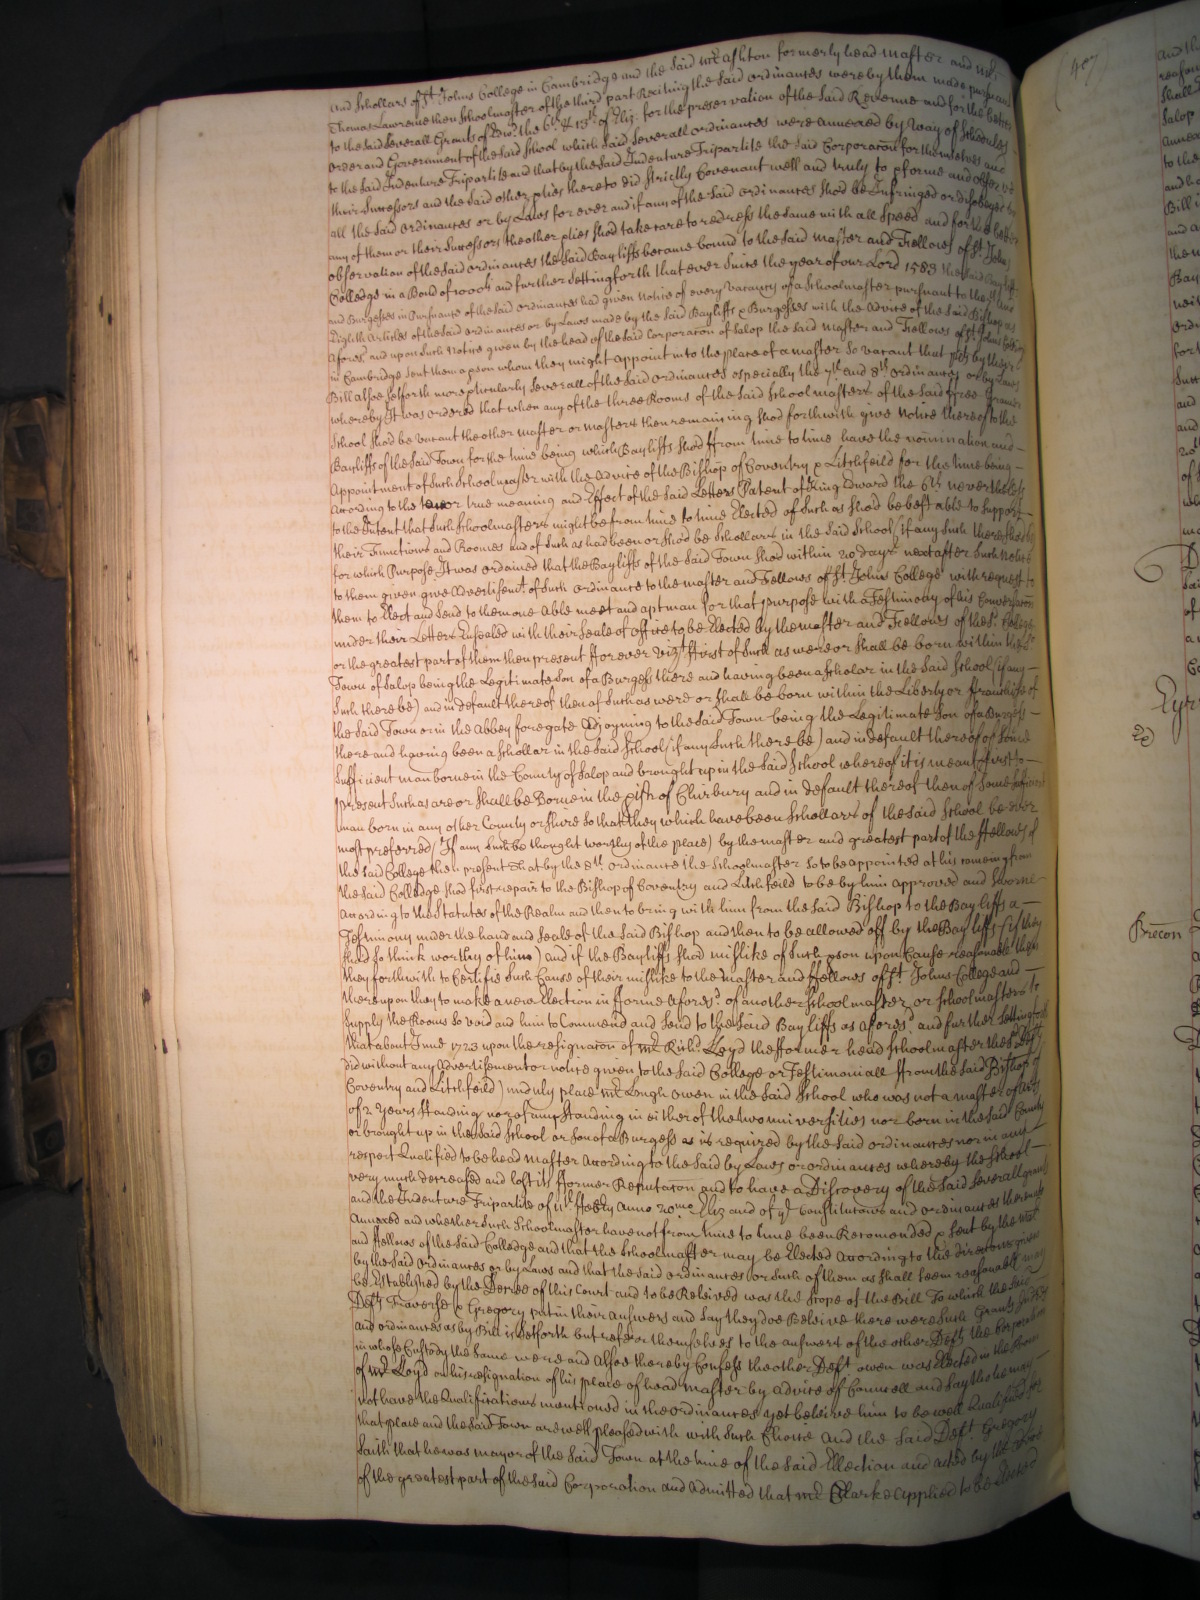 and Schollars of St. Johns College in Cambridge and the Said Mr. Ashton formerly head Master and Mr.
Thomas Lawrence then Schoolmaster of the third part Reciting the Said Ordinances were by them made pursuant
to the Said Severall Grants of Edw. the 6th. & 13th of Eliz. for the preservation of the Said Revenue and for the better
Order and Government of the Said School which Said Severall Ordinances were annexed by Way of Schedules
to the Said Indenture Tripartite and that by the Said Indenture Tripartite the Said Corporacon for themselves and
their Successors and the Said other pties thereto did Strictly Covenant well and truly to pforme and observe
all the Said Ordinances or by Laws for ever and if any of the Said Ordinances shod be Infringed or disobeyed by
any of them or their Successors the other pties shod take care to redress the Same with all Speed and for the better
observation of the Said Ordinances the Said Bayliffs became bound to the Said Master and Fellows of St. Johns
Colledge in a Bond of 1000£ and further Setting forth that ever Since the year of our Lord 1583 the Said Bayliffs
and Burgesses in Pursuance of the Said Ordinances had given Notice of every Vacancy of a Schoolmaster pursuant to the
Eighth Articles of the Said Ordinances or by Laws made by the Said Bayliffs & Burgesses with the Advice of the Said Bishop as
Afores.d and upon Such Notice given by the head of the Said Corporacon of Salop the Said Master and Fellows of St. Johns College
in Cambridge Sent them a pson whom they might appoint into the place of a Master So vacant that by their
Bill alsoe Setforth more pticularly Severall of the Said Ordinances especially the 7th. and 8th Ordinances or by Laws
whereby It was Ordered that when any of the three Rooms of the Said School masters of the Said Free Gramer
School Shod be vacant the other Master or Masters then remaining Shod forthwith give Notice thereof to the
Bayliffs of the Said Town for the time being which Bayliffs Shod ffrom time to time have the nomination and
Appointment of Such Schoolmaster with the Advice of the Bishop of Coventry & Litchfeild for the time being
According to the tenor true meaning and Effect of the Said Letters Patent of King Edward the 6th nevertheless
to the Intent that Such Schoolmasters might be from time to time Elected of Such as Shod be best able to Support
their Functions and Roomes and of Such as had been or Shod be Schollars in the Said School if any Such there shod be
for which Purpose It was ordained that the Bayliffs of the Said Town Shod within 20 days next after Such Notice
to them given give Advertisemt. of Such Ordinance to the Master and Fellows of St. Johns College with request to
them to Elect and Send to them one Able meet and apt man for that purpose with a Testimony of his Conversacon
under their Letters Ensealed with their Seale of office to be Elected by the Master and Fellows of the Sd. College
or the greatest part of them then present fforever vizt. ffirst of Such as were or Shall be born within the Sd.
Town of Salop being the Legitimate Son of a Burgess there and having been a Scholar in the Said School (if any
Such there be) and in default thereof then of Such as were or Shall be born within the Liberty or ffranchise of
the Said Town or in the Abbey foregate Adjoyning to the Said Town being the Legitimate Son of a Burgess
there and having been a Schollar in the Said School (if any Such there be) and in default thereof of Some
Sufficient man borne in the County of Salop and brought up in the Said School whereof it is meant ffirst to
present Such as are or Shall be Borne in the pish of Chirbury and in default thereof then of Some Sufficient
man born in any other County or Shire So that they which have been Schollars of the Said School be ever
most preferred (If any Such be thought worthy of the place) by the Master and greatest part of the ffellows of
the Said College then present That by the 8th Ordinance the Schoolmaster So to be appointed at his comeing from
the Said Colledge Shod first repair to the Bishop of Coventry and Litchfeild to be by him approved and Sworne
According to the Statutes of the Realm and then to bring with him from the Said Bishop to the Bayliffs a
Testimony under the hand and Seale of the Said Bishop and then to be allowed off by the Bayliffs (if they
Shod So think worthy of him) and if the Bayliffs Shod mislike of Such pson upon Cause reasonable then
they forthwith to Certifie Such Cause of their mislike to the Master and ffellows of St. Johns College and
thereupon they to make a new Election in fforme Aforesd. of another Schoolmaster or Schoolmasters to
Supply the Rooms So void and him to Commend and Send to the Said Bayliffs as Aforesd. and further Setting forth
that about June 1723 upon the resignacon of Mr. Richd. Lloyd the fformer head Schoolmaster the Sd. Defts
did without any Advertisement or notice given to the Said College or Testimoniall ffrom the Said Bishop of
Coventry and Litchfeild) unduly place Mr. Hugh Owen in the Said School who was not a Master of Arts
of 2 Years Standing nor of any Standing in either of the two universities nor born in the Said County
or brought up in the Said School or Son of a Burgess as is required by the Said Ordinances nor in any
respect Qualified to be head Master According to the Said by Laws or ordinances whereby the School
very much decreased and lost its fformer Reputacon and to have a Discovery of the Said Severall grants
and the Indenture Tripartite of Anno 20mo. Eliz and of ye. Constitutions and ordinances thereunto
Annexed and whether Such Schoolmaster have not from time to time been Recomended & Sent by the Mastr.
and ffellows of the Said Colledge and that the Schoolmaster may be Elected According to the directions given
by the Said Ordinances or by Laws and that the Said Ordinances or Such of them as Shall Seem reasonable may
be Established by the Decree of this Court and to be Releived was the Scope of the Bill To which the Said
Defts. Traverse & Gregory put in their Answers and Say they doe Beleive there were Such Grants
and ordinances as by Bill is Setforth but refer themselves to the Answers of the other Defts. the Corporacon
in whose Custody the Same were and Alsoe thereby Confess the other Deft. Owen was Elected in the Room
of Mr. Lloyd on his resignation of his place of head Master by advice of Councell and Say tho he may
not have the Qualifications mentioned in the Ordinances yet beleive him to be well Qualified for
that place and the Said Town are well pleased with with Such Choice And the Said Deft. Gregory
Saith that he was Mayor of the Said Town at the time of the Said Election and acted by the
of the greatest part of the Said Corporation and Admitted that Mr. Clarke applied to be Elected
(407)
Brecon